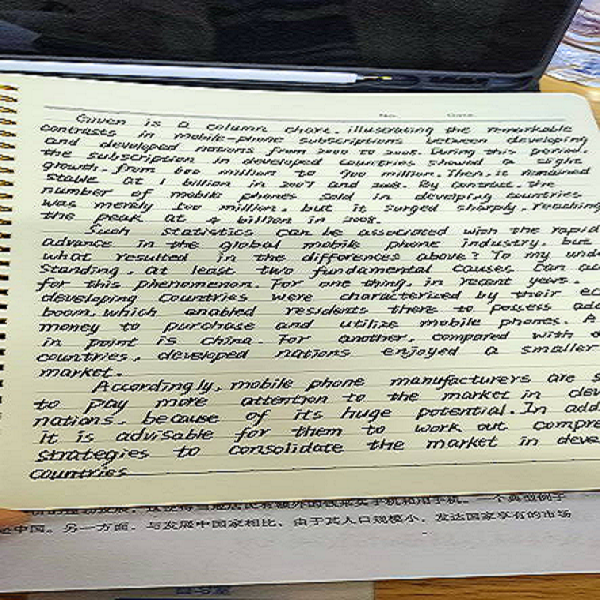 No. Date
Given is a column chart, illustrating the remarkable
contrasts in mobile-phone subscriptions between developing
and developed nations from 2000 to 2008. During this period,
the subscription in developed countries showed a slight
growth, from 600 million to 900 million. Then, it remained
stable at 1 billion in 2007 and 2008. By contrast, the
number of mobile phones sold in developing countries
was merely million, but it surged sharply, reaching
the peak at 4 billion in 2008.
Such statistics can be associated with the rapid
advance in the global mobile phone industry, but
what resulted in the differences above? To my unde
standing, at least two fundamental causes can
for this phenomenon. For one thing, in recent years,
developing countries were characterized by their ec
boom, which enabled residents there to possess
money to purchase and utilize mobile phones. A
in point is China. For another, compared with
countries, developed nations enjoyed a smaller
market.
Accordingly, mobile phone manufacturers are s
to pay more attention to the market in deve
nations, because of its huge potential. In add
it is advisable for them to work out compre
strategies to consolidate the market in deve
countries
手机和用手机。一个典型例子
是中国。另一方面，与发展中国家相比，由于其人口规模小，发达国家享有的市场